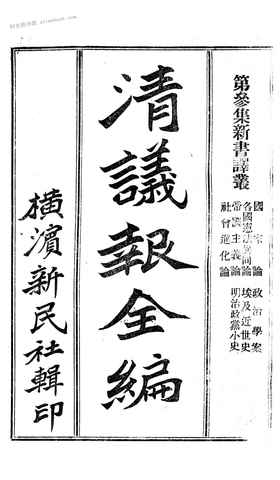 第參集新書譯叢
國家論 政治學案
各國憲法異同論 埃及近世史
帝國主義論 明治政黨小史
社會進化論
清議報全編
橫濱新民社輯印